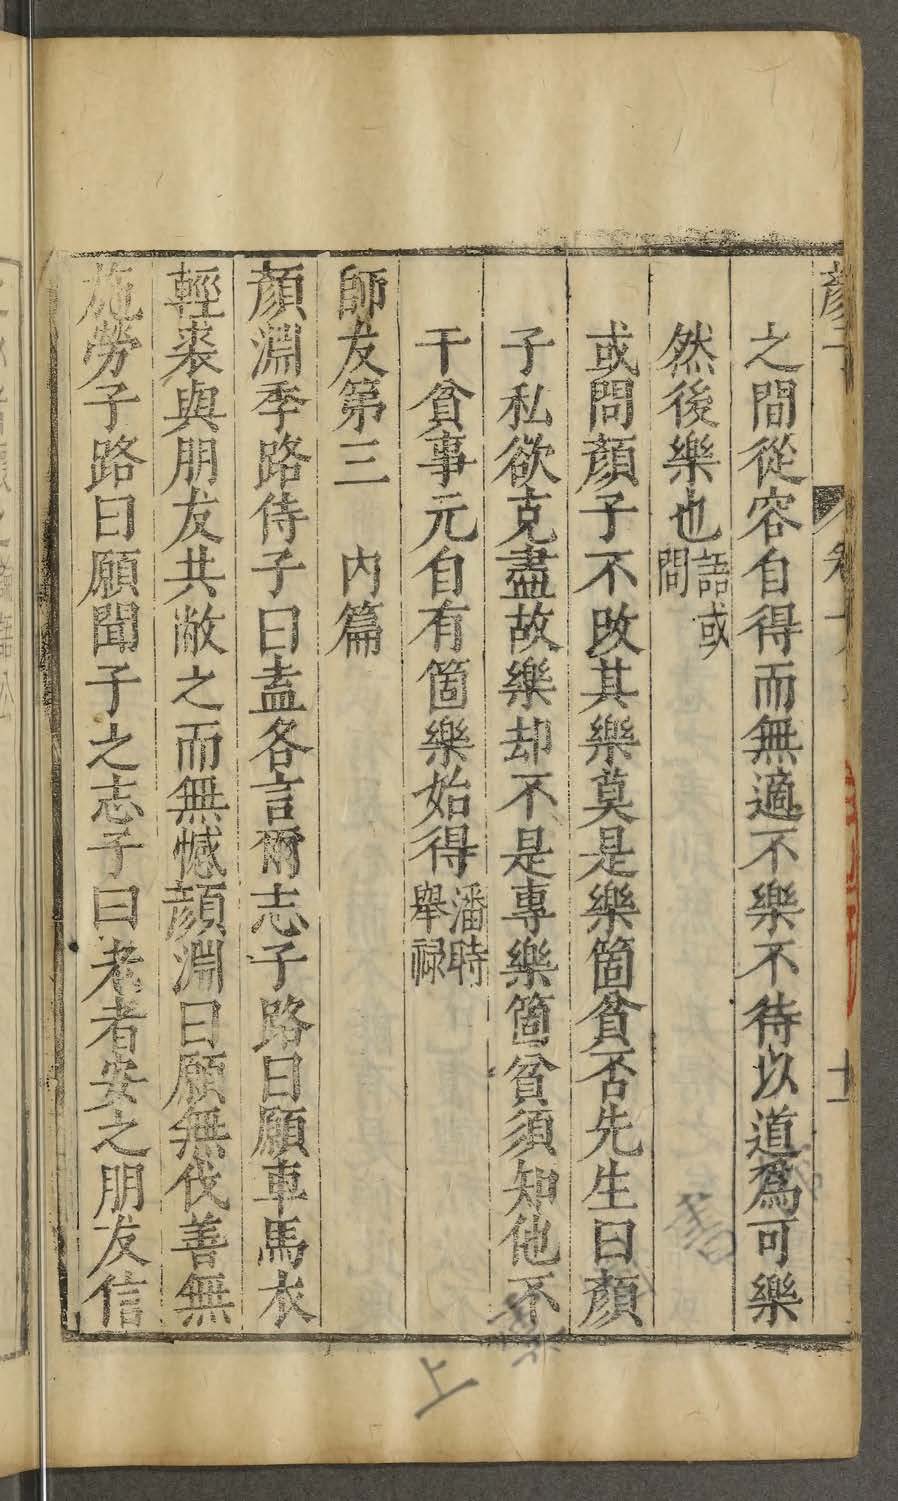 之間從容自得而無適不樂不待以道爲可樂
然後樂也語或問
或問顏子不改其樂莫是樂箇貧否先生曰顏
子私欲克盡故樂却不是專樂箇貧須知他不
干貧事元自有箇樂始得潘時舉祿
師友第三 內篇
顏淵季路侍子曰盍各言爾志子路曰願車馬衣
輕裘與朋友共敝之而無憾顏淵曰願無伐善無
施勞子路曰願聞子之志子曰老者安之朋友信